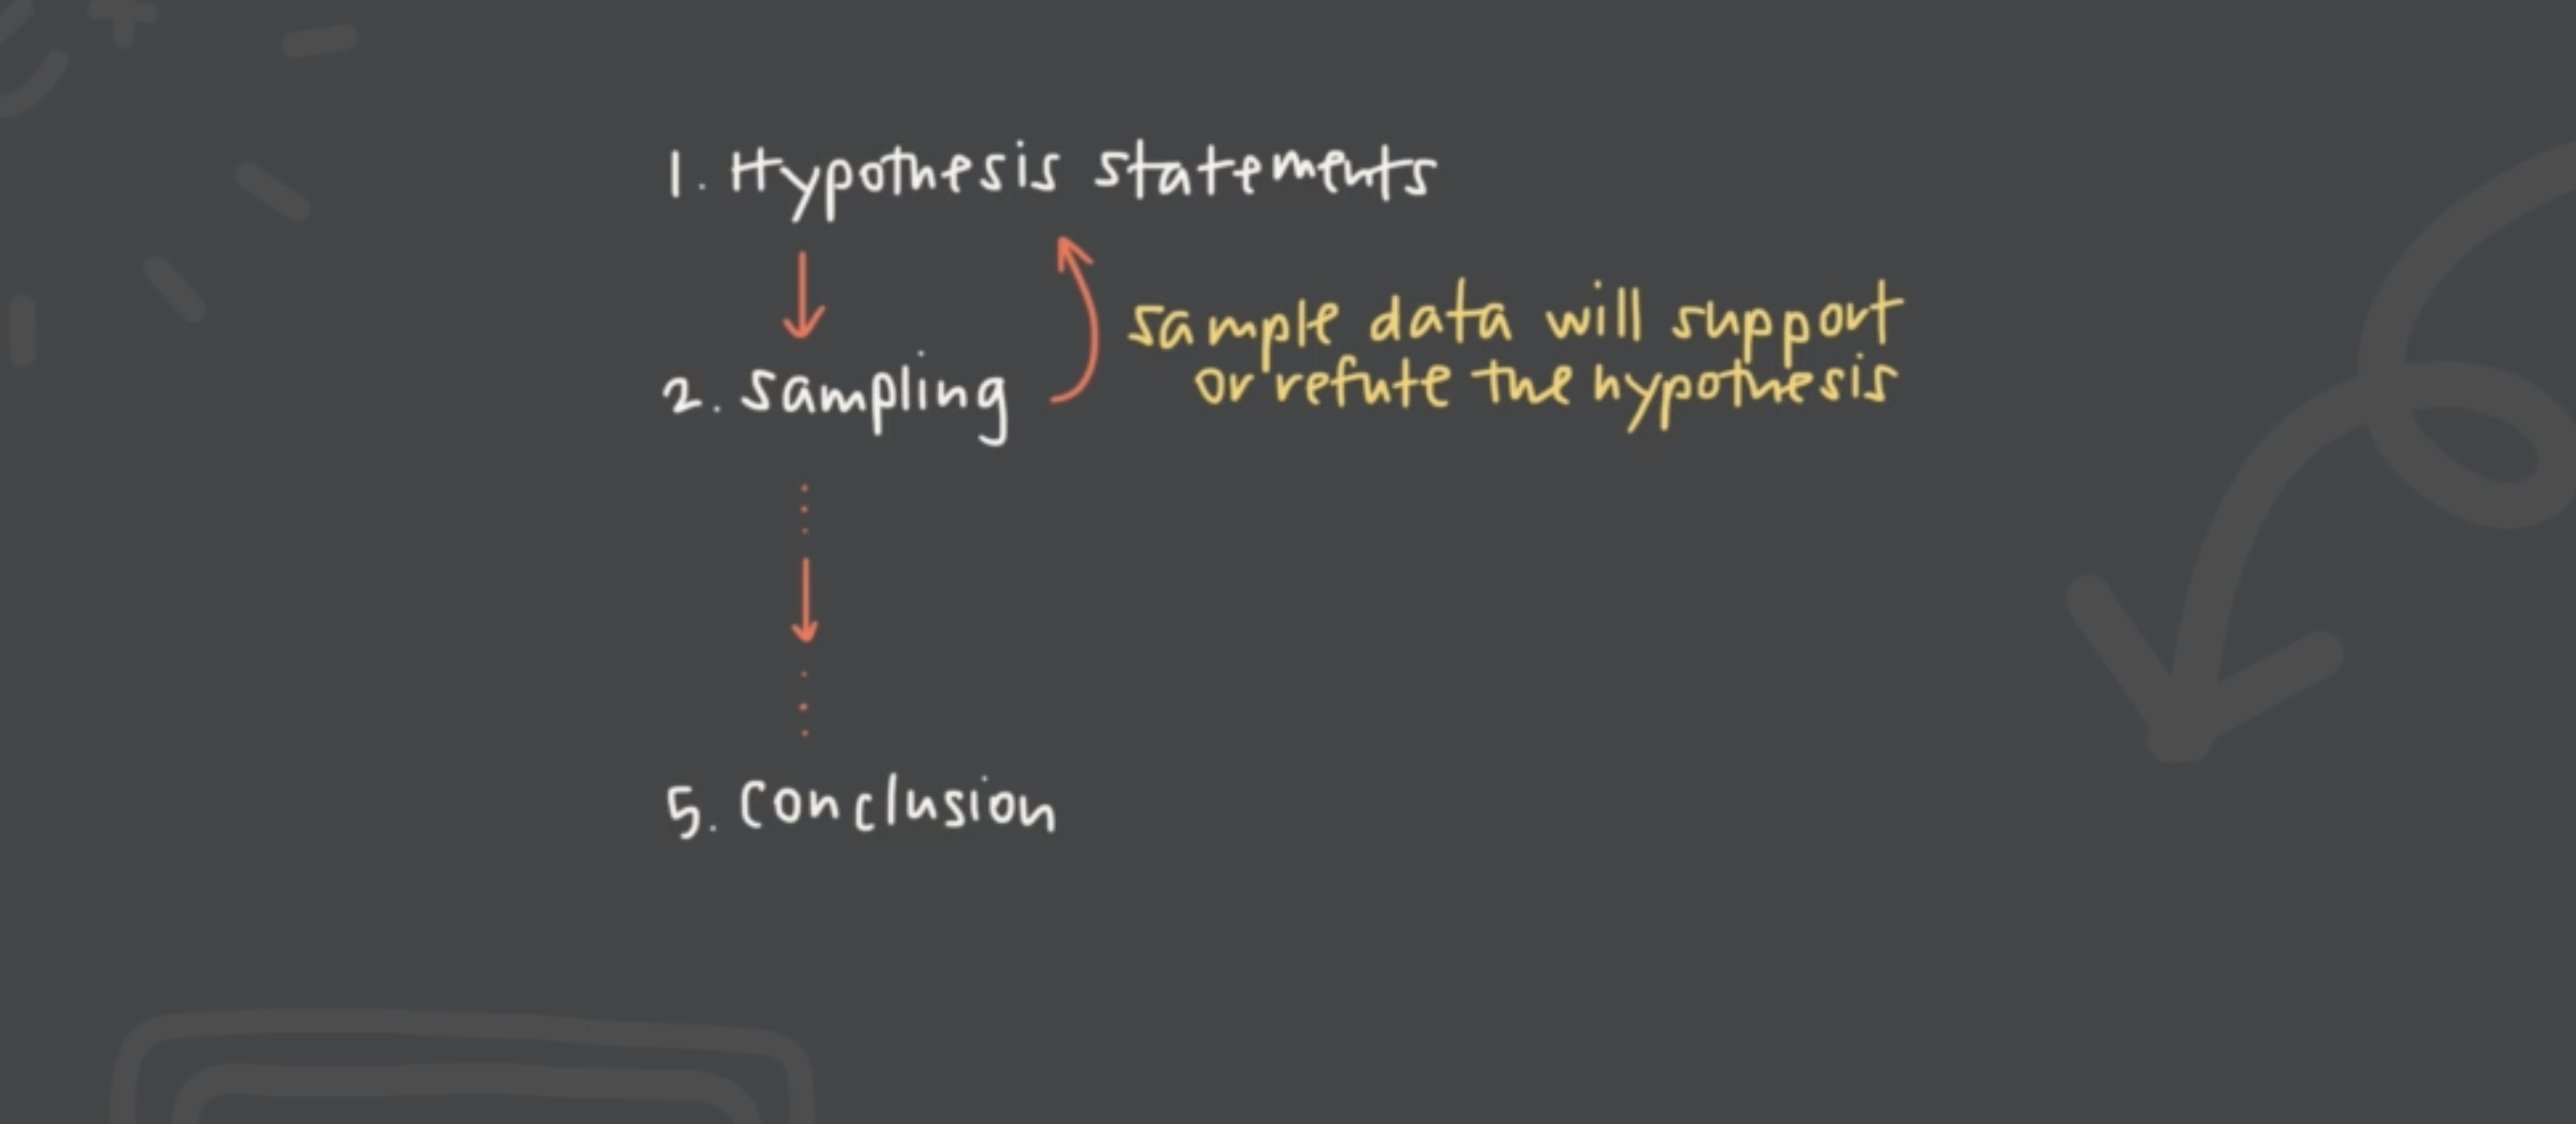 1. Hypothesis statements
sample data will support
or refute the hypothesis
2. Sampling
5. Conclusion